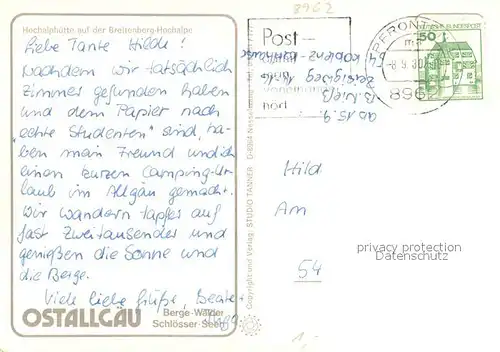 8962
Hochalphütte auf der Breitenberg-Hochalpe
Liebe Tante Hilde!
Nachdem wir tatsächlich
Zimmer gefunden haben
und dem Papier nach
"echte Studenten" sind, ha-
ben mein Freund und ich
einen kurzen Camping-Ur-
laub im Allgäu gemacht.
Wir wandern tapfer auf
fast Zweitausender und
genießen die Sonne und
die Berge.
Viele liebe Grüße, Beate +
OSTALLGÄU
Berge-Wälder
Schlösser-Seen
Copyright und Verlag: STUDIO TANNER D-8964 Nesselwang
Post
hört
PFRONTEN
-8.9.80
896
50
DEUTSCHE BUNDESPOST
ab 15.9
54 Koblenz-Karthause
Hild
Am
54
privacy protection
Datenschutz
1,-